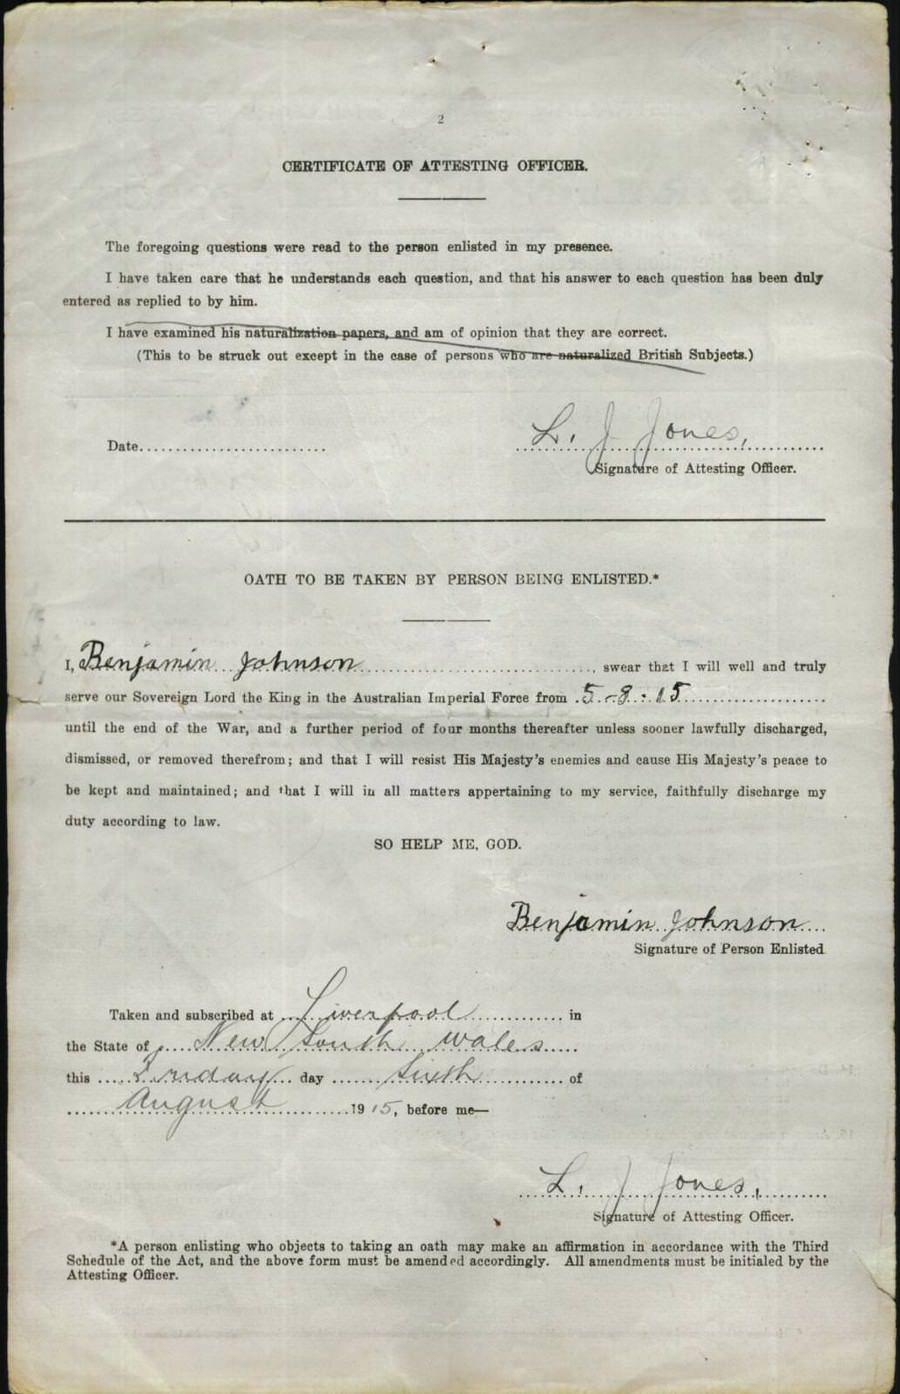 2
CERTIFICATE OF ATTESTING OFFICER.
The foregoing questions were read to the person enlisted in my presence.
I have taken care that he understands each question, and that his answer to each question has been duly
entered as replied to by him.
I have examined his naturalization papers, and am of opinion that they are correct.
(This to be struck out except in the case of persons who are naturalized British Subjects.)
Date........................ L. J Jones,
Signature of Attesting Officer.
OATH TO BE TAKEN BY PERSON BEING ENLISTED.*
I, Benjamin Johnson, swear that I will well and truly
serve our Sovereign Lord the King in the Australian Imperial Force from 5-8-15
until the end of the War, and a further period of four months thereafter unless sooner lawfully discharged,
dismissed, or removed therefrom; and that I will resist His Majesty's enemies and cause His Majesty's peace to
be kept and maintained; and that I will in all matters appertaining to my service, faithfully discharge my
duty according to law.
SO HELP ME, GOD.
Benjamin Johnson
Signature of Person Enlisted
Taken and subscribed at Liverpool in
the State of New South Wales
this Friday day Sixth of
August 1915, before me—
L. J Jones,
Signature of Attesting Officer.
*A person enlisting who objects to taking an oath may make an affirmation in accordance with the Third
Schedule of the Act, and the above form must be amended accordingly. All amendments must be initialed by the
Attesting Officer.